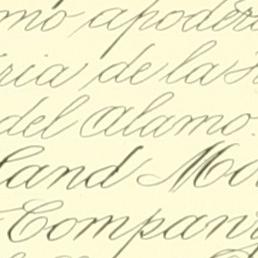 mo apodera
ria de la S
del Alamo.
land Mo
Company